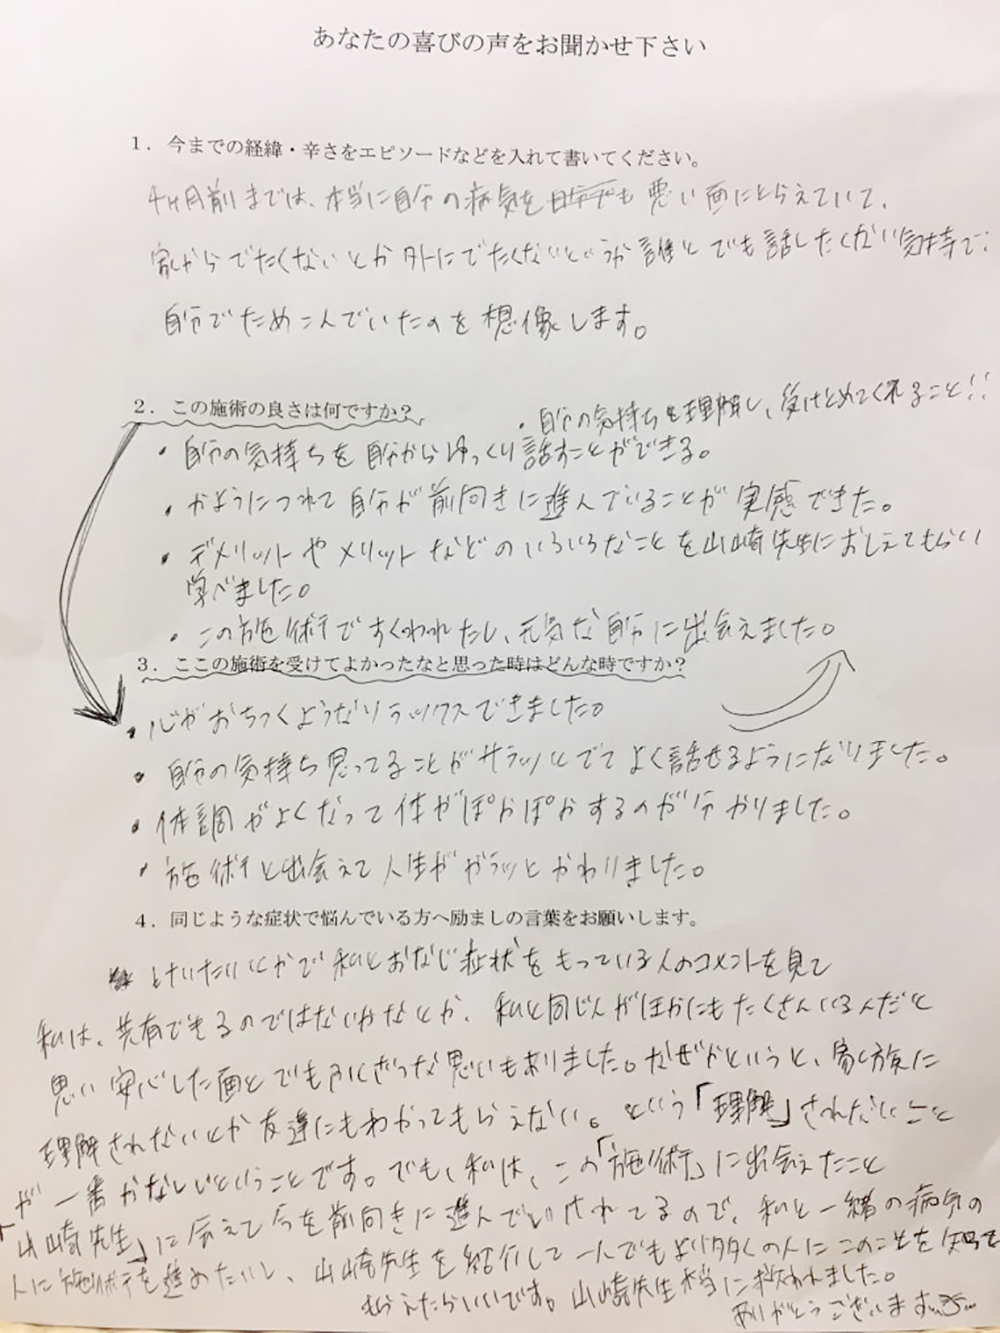 あなたの喜びの声をお聞かせ下さい
1．今までの経緯・辛さをエピソードなどを入れて書いてください。
4ヶ月前までは、本当に自分の病気を 悪い面にとらえていて、
家からでたくないとか外にでたくないというか誰とでも話したくない気持で、
自分でためこんでいたのを想像します。
2．この施術の良さは何ですか？
・自分の気持ちを理解し、受けとめてくれること!!
・自分の気持ちを自分からゆっくり話すことができる。
・かようにつれて自分が前向きに進んでいることが実感できた。
・デメリットやメリットなどのいろいろなことを山崎先生におしえてもらい
学べました。
・この施術ですくわれたし、元気な自分に出会えました。
3．ここの施術を受けてよかったなと思った時はどんな時ですか？
・心がおちつくようなリラックスできました。
・自分の気持ち思ってることがサラッとでてよく話せるようになりました。
・体調がよくなって体がぽかぽかするのが分かりました。
・施術と出会えて人生がガラッとかわりました。
4．同じような症状で悩んでいる方へ励ましの言葉をお願いします。
けいたいとかで私とおなじ症状をもっている人のコメントを見て
私は、共有できるのではないかなとか、私と同じ人がほかにもたくさんいるんだと
思い安心した面とでもふくざつな思いもありました。なぜかというと、家族に
理解されないとか友達にもわかってもらえない。という「理解」されないこと
が一番かなしいということです。でも、私は、この「施術」に出会えたこと
「山崎先生」に会えて今を前向きに進んでいけれてるので、私と一緒の病気の
人に施術を進めたいし、山崎先生を紹介して一人でもより多くの人にこのことを知って
もらえたらいいです。山崎先生本当に救われました。
ありがとうございます